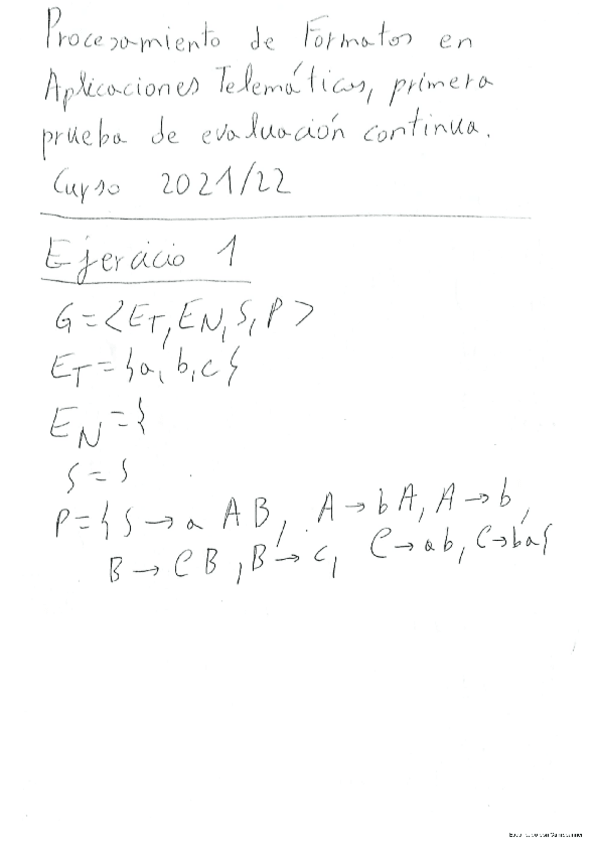 Procesamiento de Formatos en
Aplicaciones Telemáticas, primera
prueba de evaluación continua.
Curso 2021/22
Ejercicio 1
G = < E_T, E_N, S, P >
E_T = { a, b, c }
E_N = {
S = S
P = { S → a A B, A → b A, A → b,
B → C B, B → c, C → ab, C → ba }